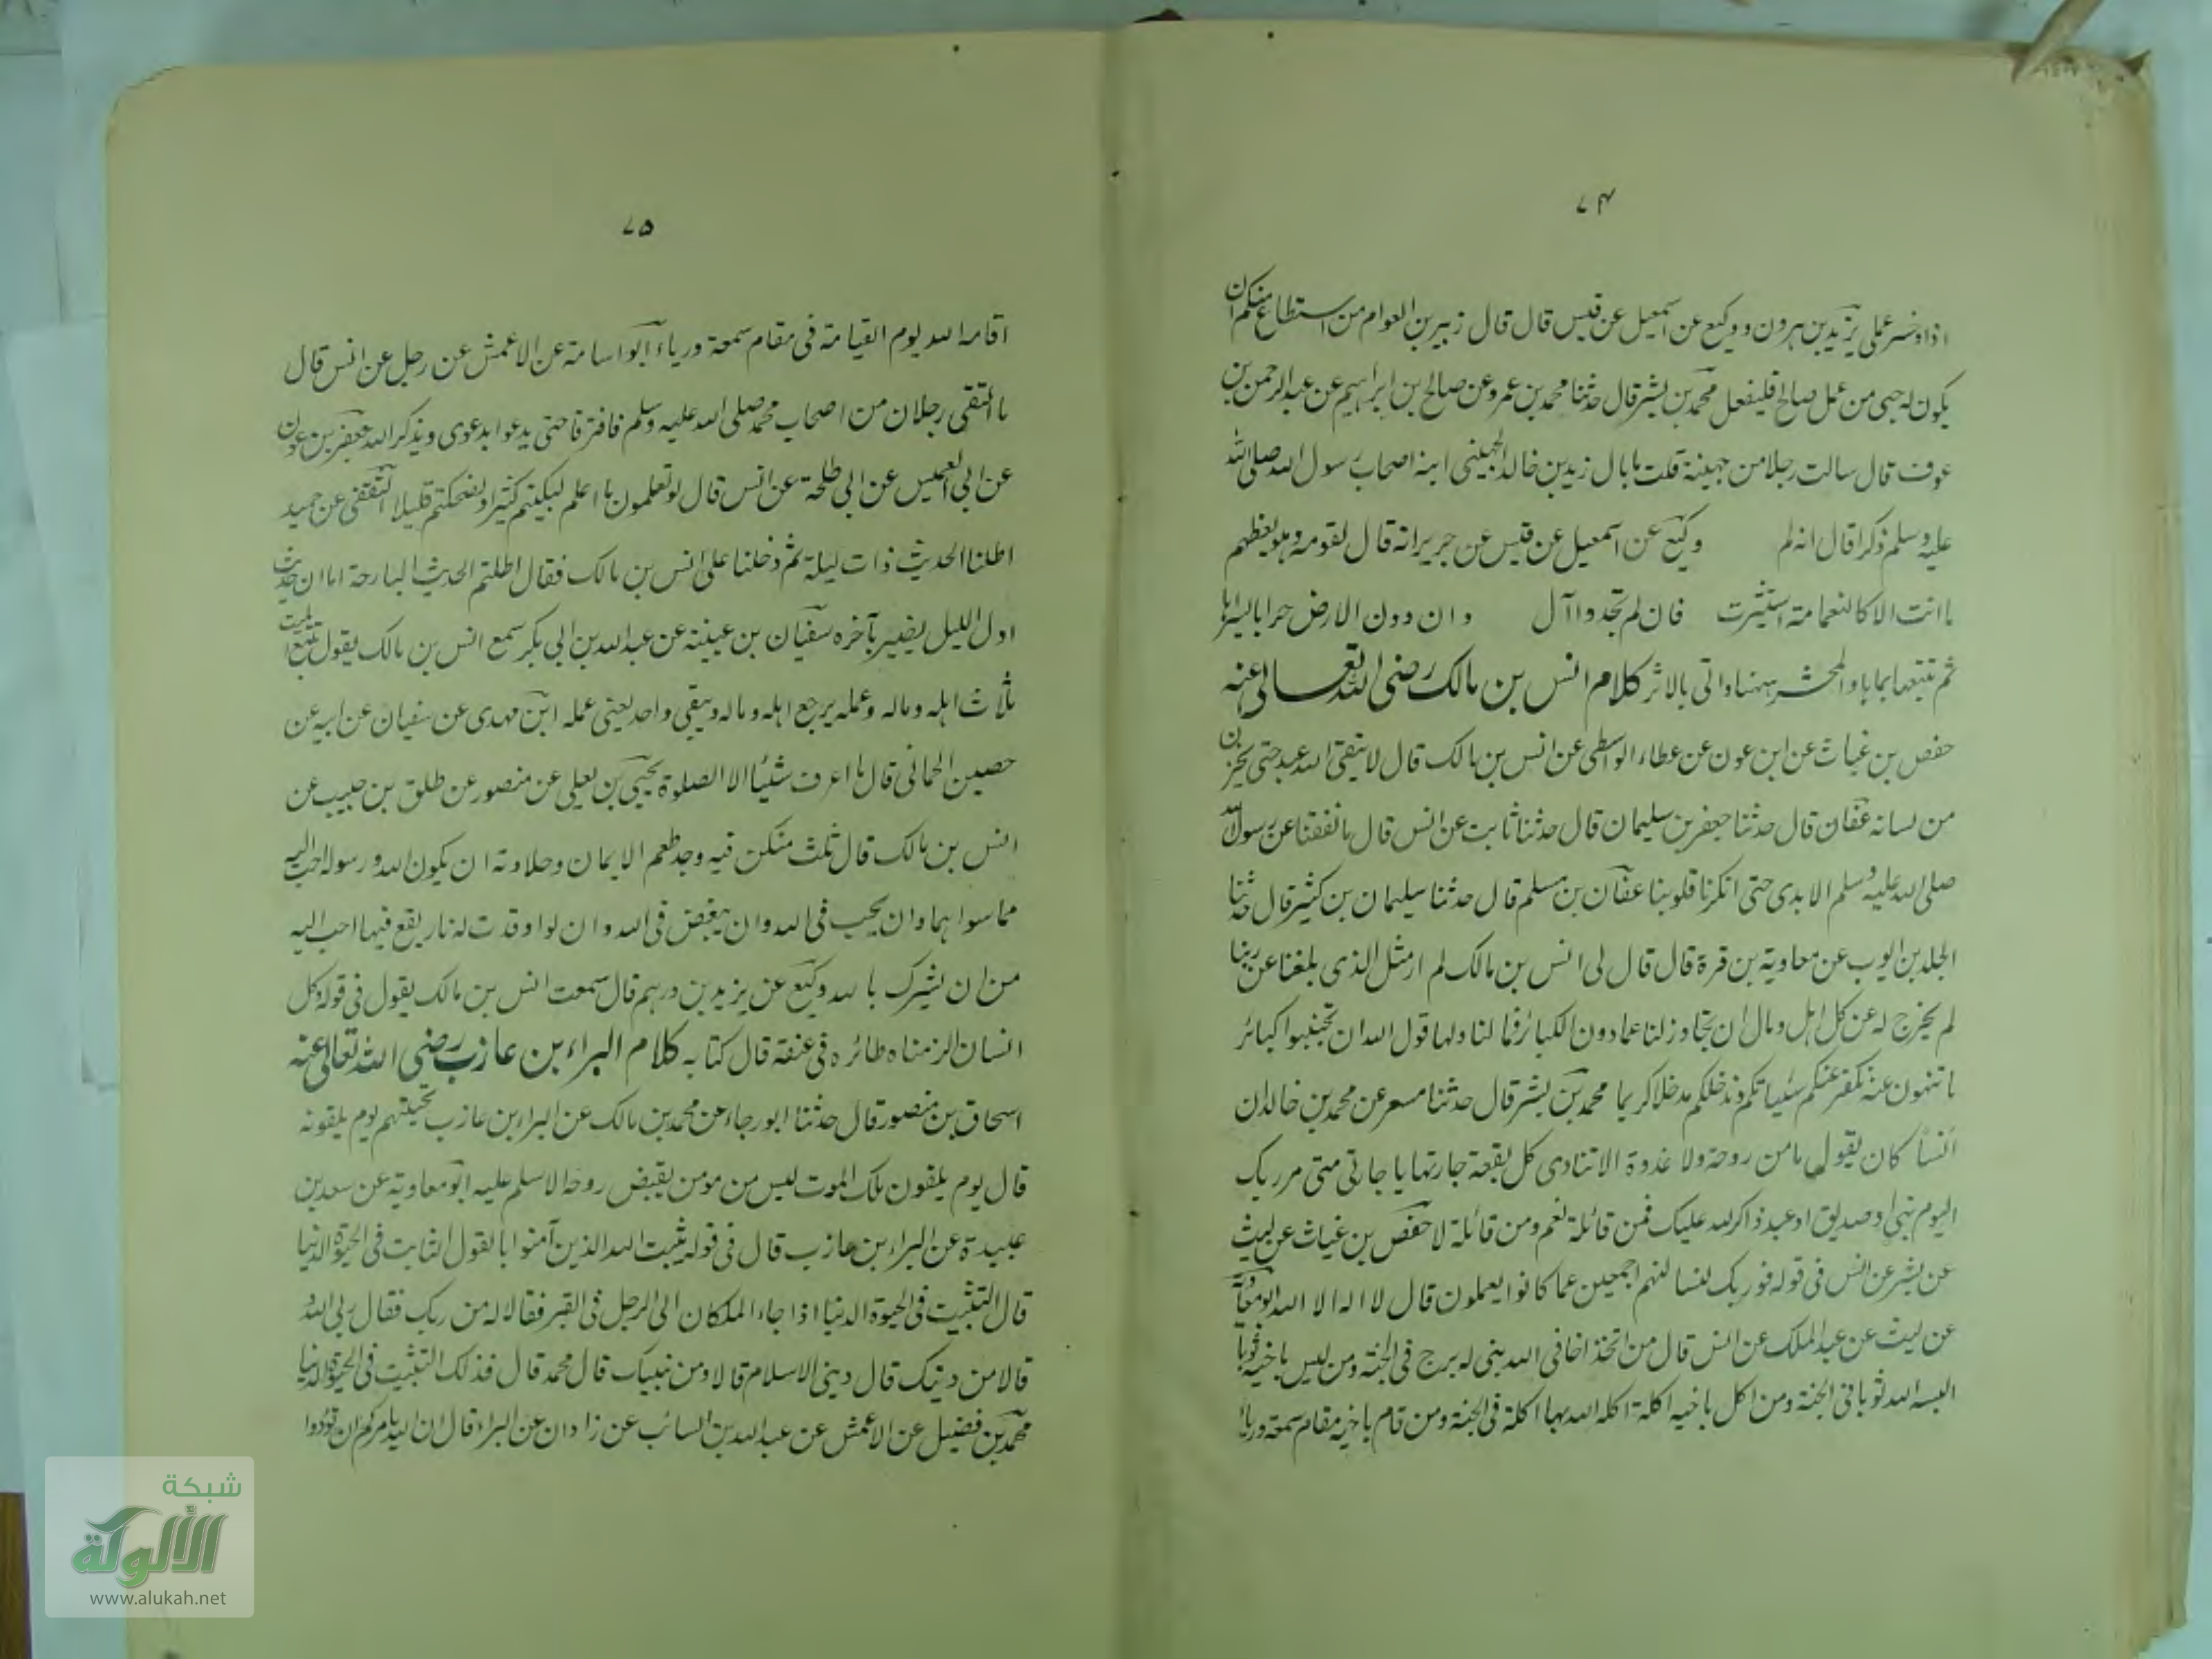 ٧٤
اذا ونسر عملى يزيد بن هرون ووكيع عن اسمعيل عن قيس قال قال زبير بن العوام من استطاع منكم ان
يكون له خبى من عمل صالح فليفعل محمد بن بشر قال حدثنا محمد بن عمرو عن صالح بن ابراهيم عن عبد الرحمن بن
عوف قال سالت رجلا من جهينة قلت ما بال زيد بن خالد الجهيني ابنه اصحاب رسول الله صلى الله
عليه وسلم ذكرا قال انه لم وكيع عن اسمعيل عن قيس عن جرير انه قال لقومه وهو يعظهم
ما انت الا كالنعامة استثيرت فان لم تجدوا آل وان دون الارض
ثم تتبعها والمحشر ههنا واتى بالاثر كلام انس بن مالك رضى الله تعالى عنه
حفص بن غياث عن ابن عون عن عطاء الواسطى عن انس بن مالك قال لا يتقى الله عبد حتى يخزن
من لسانه عفان قال حدثنا جعفر بن سليمان قال حدثنا ثابت عن انس قال ما نفضنا عن رسول الله
صلى الله عليه وسلم الايدى حتى انكرنا قلوبنا عفان بن مسلم قال حدثنا سليمان بن كثير قال حدثنا
الجلد بن ايوب عن معاوية بن قرة قال قال لى انس بن مالك لم ار مثل الذى بلغنا عن ربنا
لم يخرج له عن كل اهل ومال ان تجاوز لنا عما دون الكبائر فما لنا ولها قول الله ان تجتنبوا كبائر
ما تنهون عنه نكفر عنكم سيئاتكم وندخلكم مدخلا كريما محمد بن بشر قال حدثنا مسعر عن محمد بن خالد ان
انسا كان يقول ما من روحة ولا غدوة الا تنادى كل بقعة جارتها يا جارتى متى مر بك
اليوم نبى او صديق او عبد ذاكر لله عليك فمن قائلة نعم ومن قائلة لا حفص بن غياث عن ليث
عن بشر عن انس فى قوله فوربك لنسالنهم اجمعين عما كانوا يعملون قال لا اله الا الله ابو معاوية
عن ليث عن عبد الملك عن انس قال من اتخذ اخا فى الله بنى له برج فى الجنة ومن لبس باخيه ثوبا
البسه الله ثوبا فى الجنة ومن اكل باخيه اكلة اكله الله بها اكلة فى الجنة ومن قام باخيه مقام سمعة ورياء
٧٥
اقامه الله يوم القيامة فى مقام سمعة ورياء ابو اسامة عن الاعمش عن رجل عن انس قال
ما التقى رجلان من اصحاب محمد صلى الله عليه وسلم فافترقا حتى يدعوا بدعوى ويذكر الله جعفر بن عون
عن ابى العميس عن ابى طلحة عن انس قال لو تعلمون ما اعلم لبكيتم كثيرا ولضحكتم قليلا الثقفى عن حميد
اطلنا الحديث ذات ليلة ثم دخلنا على انس بن مالك فقال اطلتم الحديث البارحة اما ان حديث
اول الليل يضير بآخره سفيان بن عيينة عن عبد الله بن ابى بكر سمع انس بن مالك يقول يتبع الميت
ثلاث اهله وماله وعمله يرجع اهله وماله ويبقى واحد يعنى عمله ابن مهدى عن سفيان عن ابيه عن
حصين الحمانى قال ما اعرف شيئا الا الصلوة يحيى بن يعلى عن منصور عن طلق بن حبيب عن
انس بن مالك قال ثلث من كن فيه وجد طعم الايمان وحلاوته ان يكون الله ورسوله احب اليه
مما سواهما وان يحب فى الله وان يبغض فى الله وان لو اوقدت له نار يقع فيها احب اليه
من ان يشرك بالله وكيع عن يزيد بن درهم قال سمعت انس بن مالك يقول فى قوله وكل
انسان الزمناه طائره فى عنقه قال كتابه كلام البراء بن عازب رضى الله تعالى عنه
اسحاق بن منصور قال حدثنا ابو رجاء عن محمد بن مالك عن البراء بن عازب تحيتهم يوم يلقونه
قال يوم يلقون ملك الموت ليس من مومن يقبض روحه الا سلم عليه ابو معاوية عن سعد بن
عبيدة عن البراء بن عازب قال فى قوله يثبت الله الذين آمنوا بالقول الثابت فى الحيوة الدنيا
قال التثبيت فى الحيوة الدنيا اذا جاء الملكان الى الرجل فى القبر فقالا له من ربك فقال ربى الله
قالا من دينك قال دينى الاسلام قالا ومن نبيك قال محمد قال فذلك التثبيت فى الحيوة الدنيا
محمد بن فضيل عن الاعمش عن عبد الله بن السائب عن زادان عن البراء قال ان الله يامركم ان تؤدوا
شبكة
الألوكة
www.alukah.net